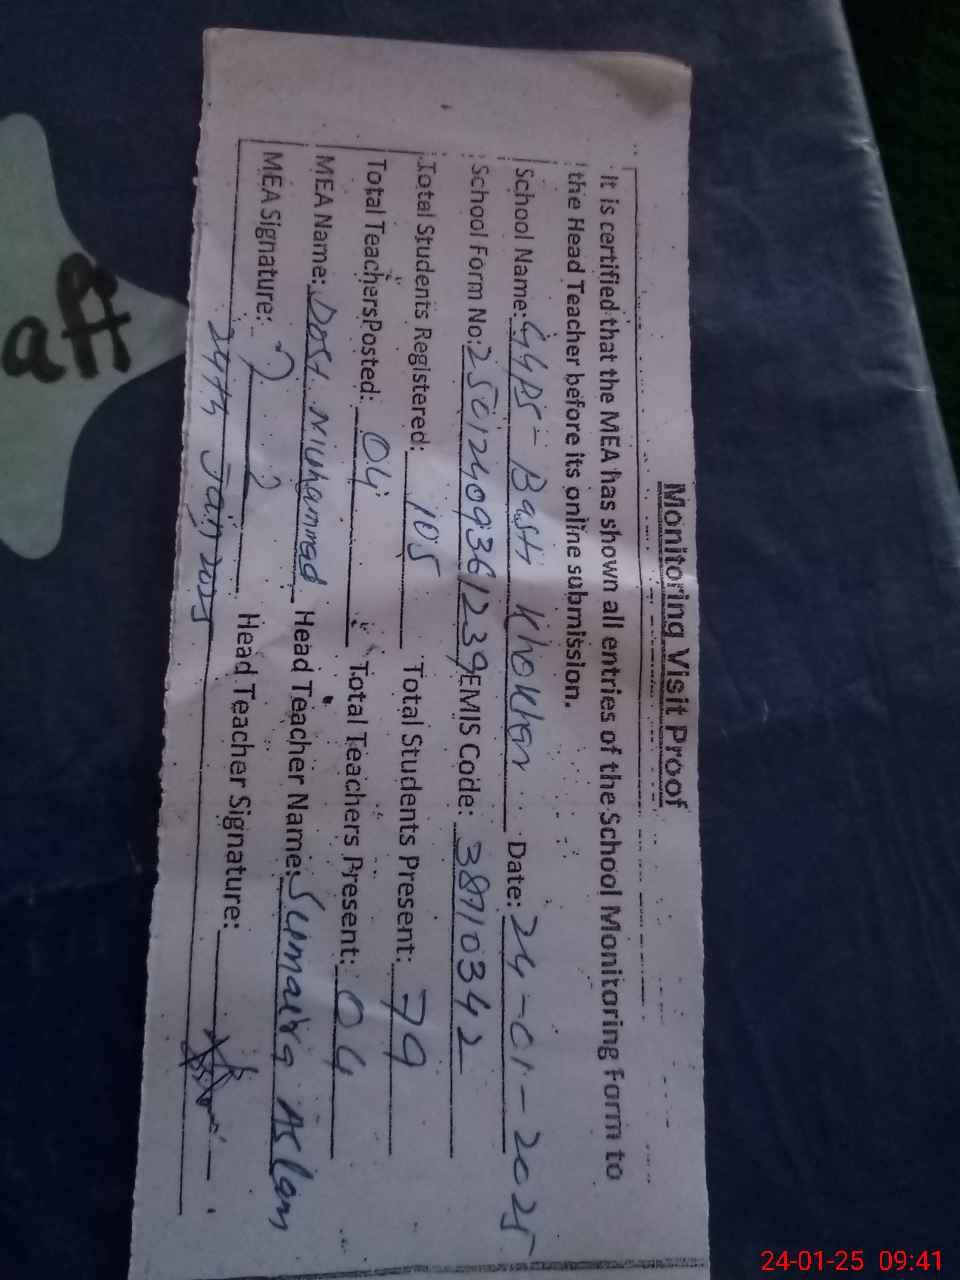 Monitoring Visit Proof
It is certified that the MEA has shown all entries of the School Monitoring Form to
the Head Teacher before its online submission.
School Name: GGPS- Basti Khokhar Date: 24-01-2025
School Form No: 25012409361239 EMIS Code: 38910342
Total Students Registered: 105 Total Students Present: 79
Total TeachersPosted: 04 Total Teachers Present: 04
MEA Name: Dost Muhammad Head Teacher Name: Sumaira Aslam
MEA Signature: Head Teacher Signature:
24th Jan, 2025
aft
24-01-25 09:41